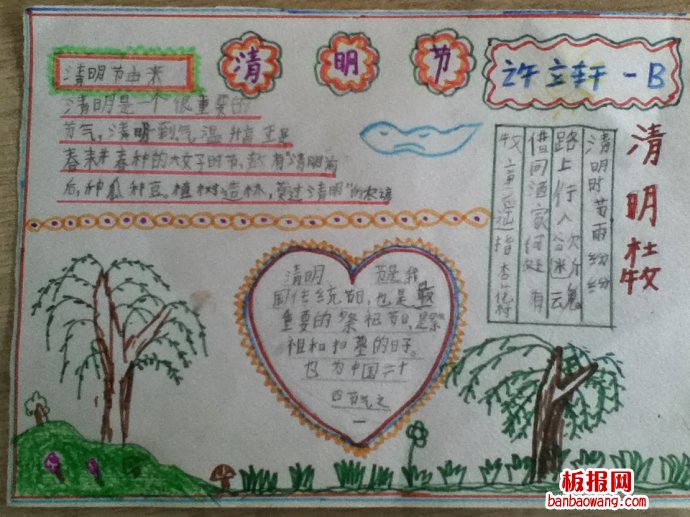 清明节
许立轩 一B
清明节由来
清明是一个很重要的
节气,清明到气温升高正是
春耕春种的大好时节,故有"清明前
后,种瓜种豆。植树造林,莫过清明"的农谚
清明 杜牧
清明时节雨纷纷
路上行人欲断魂
借问酒家何处有
牧童遥指杏花村
清明节是我
国传统节日,也是最
重要的祭祀节日,是祭
祖和扫墓的日子。
也为中国二十
四节气之
一
板报网
banbaowang.com